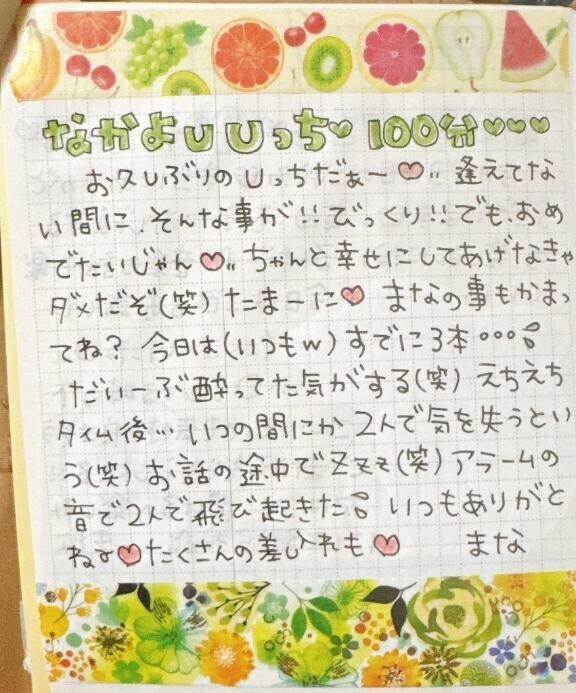 なかよしりっち♡ 100分♡♡♡
お久しぶりのりっちだぁー♡!! 逢えてな
い間に、そんな事が!!びっくり!!でも、おめ
でたいじゃん♡!! ちゃんと幸せにしてあげなきゃ
ダメだぞ(笑) たまーに♡ まなの事もかまっ
てね? 今日は(いつもw)すでに3本・・・
だいーぶ酔ってた気がする(笑) えちえち
タイム後… いつの間にか2人で気を失うとい
う(笑) お話の途中でZzz(笑) アラームの
音で2人で飛び起きた いつもありがと
ね♡たくさんの差し入れも♡ まな